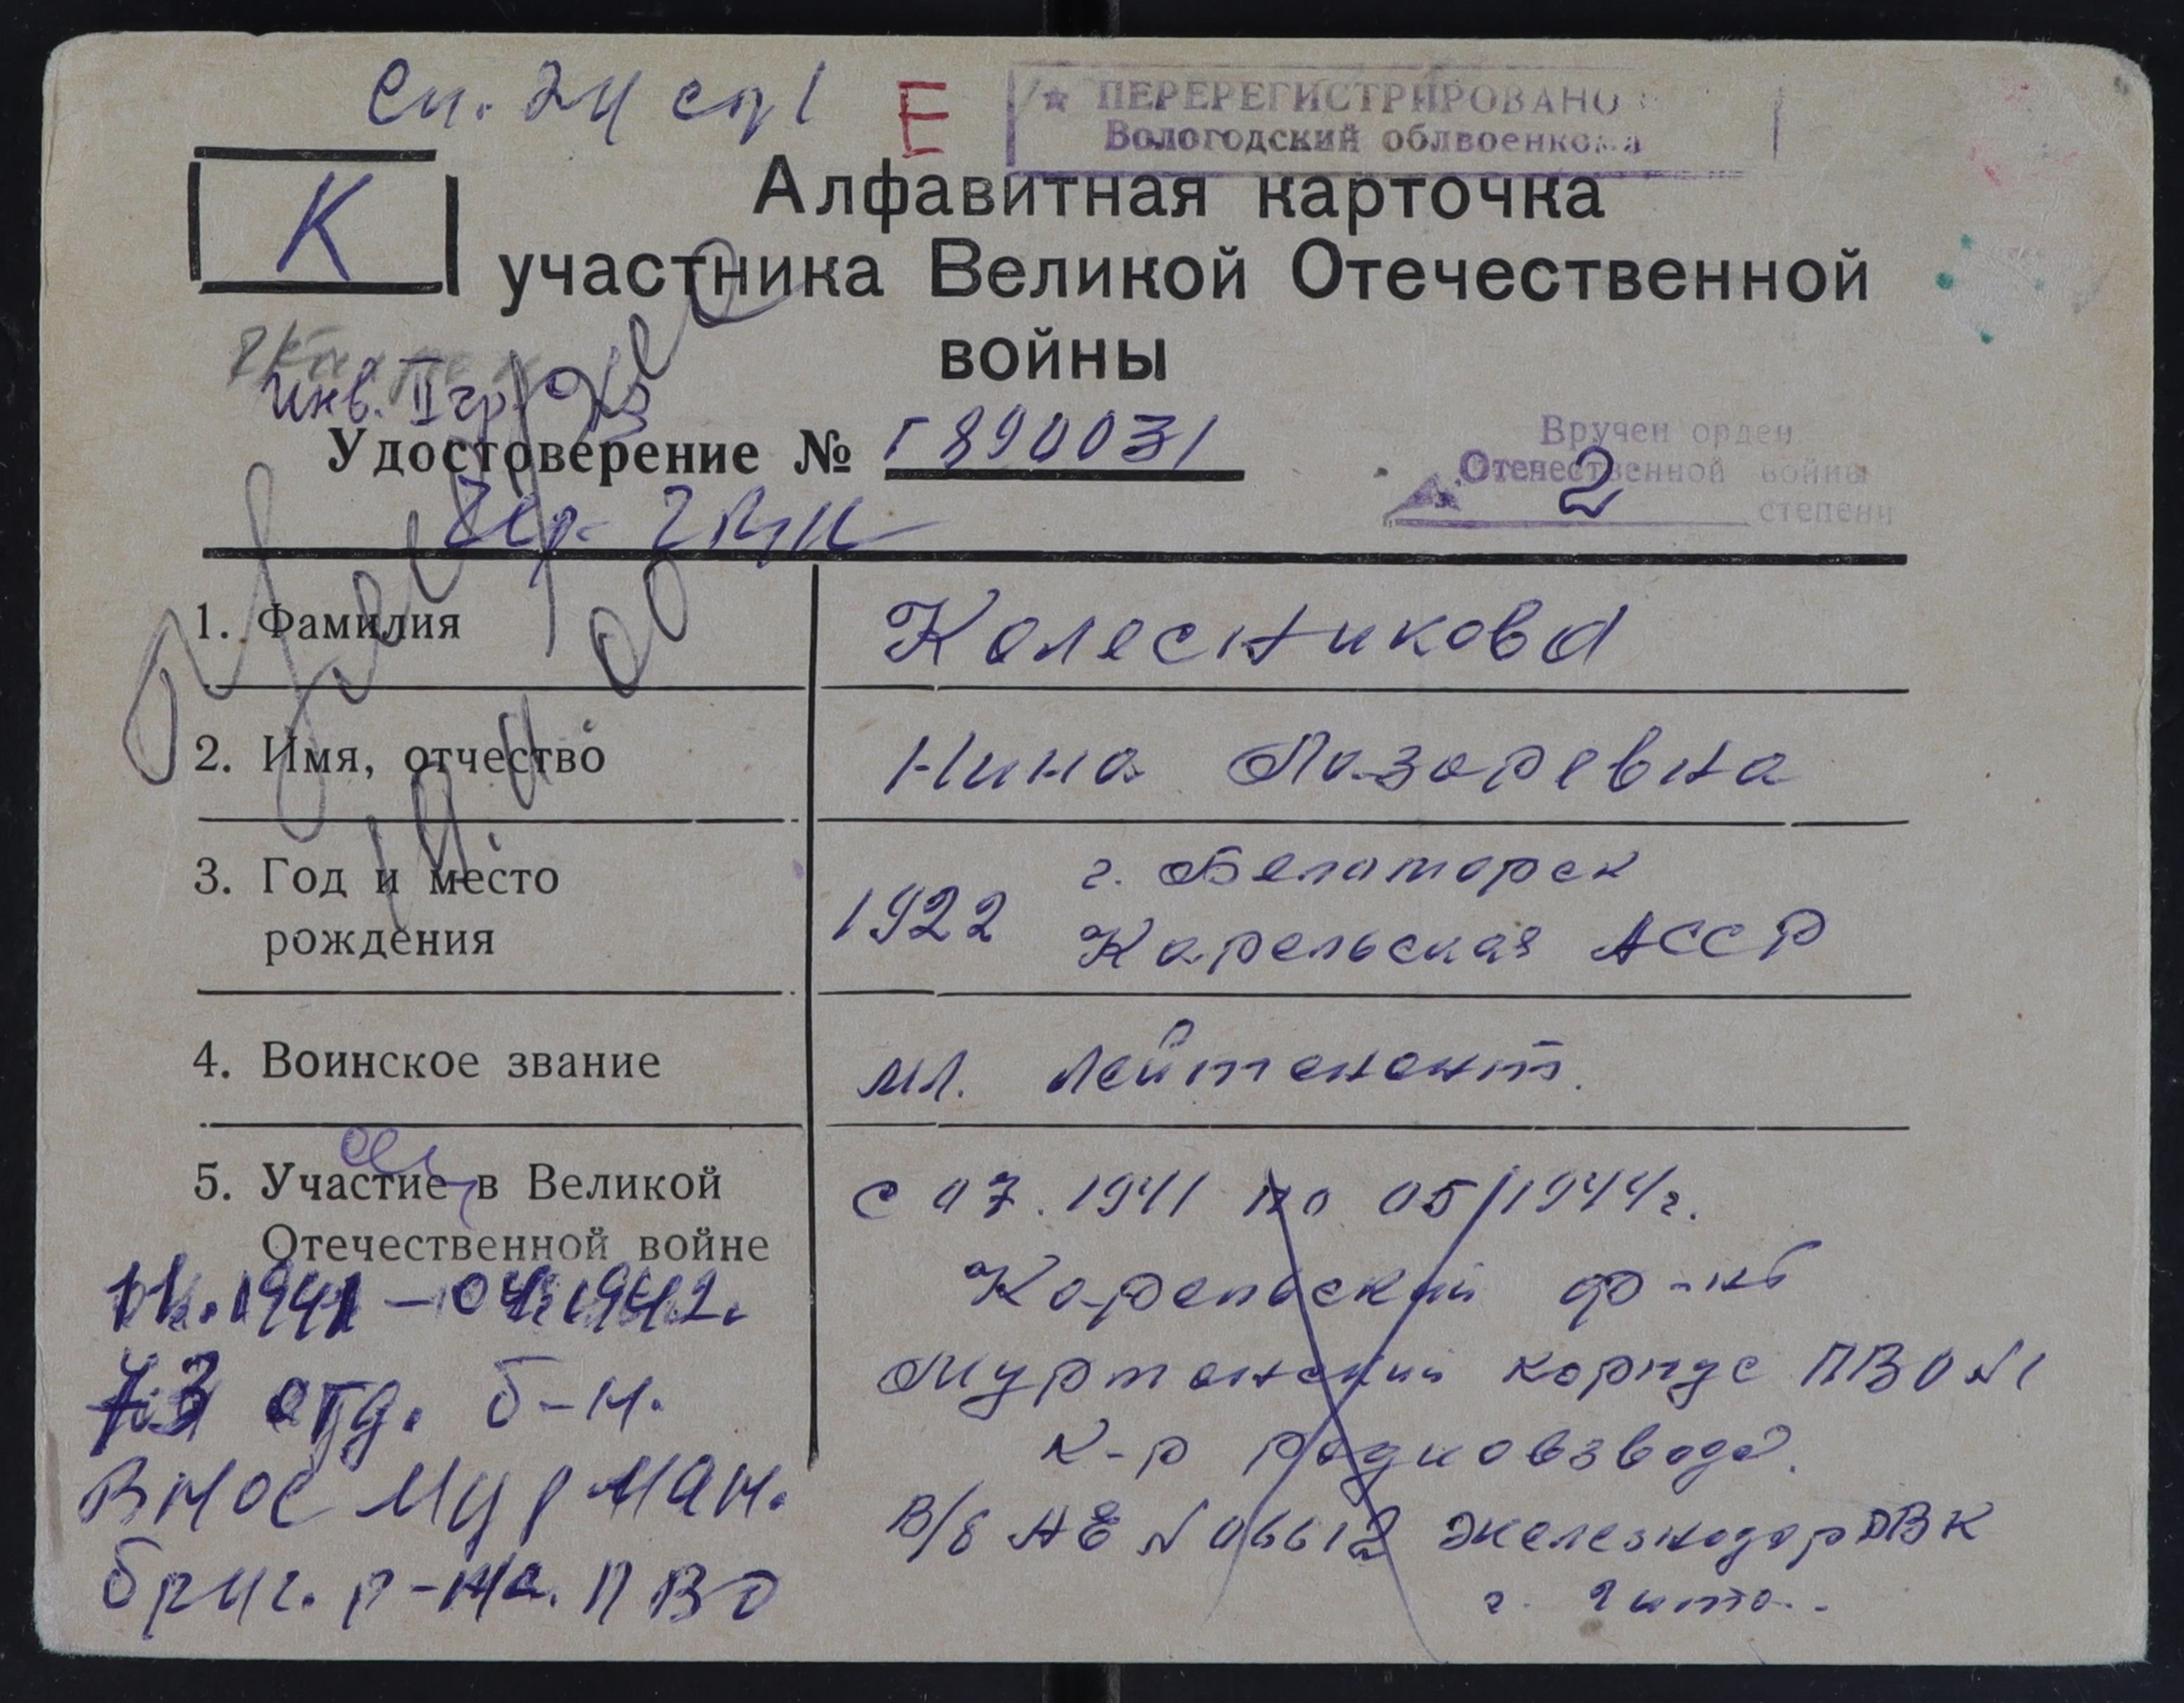 Е
★ ПЕРЕРЕГИСТРИРОВАНО
Вологодский облвоенкома
К
Алфавитная карточка
участника Великой Отечественной
войны
Инв. II гр.
Удостоверение № Г 890031
Вручен орден
Отечественной войны
2 степени
1. Фамилия Колесникова
2. Имя, отчество Нина Лазаревна
3. Год и место рождения 1922 г. Беломорск
Карельская АССР
4. Воинское звание мл. лейтенант.
5. Участие в Великой
Отечественной войне
с 07.1941 по 05/1944г.
Карельский фр-нт
Мурманский корпус ПВО №1
к-р радиовзвода.
В/ч № 06612 железнодор ДВК
г. Чита.
11.1941 – 04.1942.
73 отд. б-н.
ВНОС Мурман.
бриг. р-на. ПВО